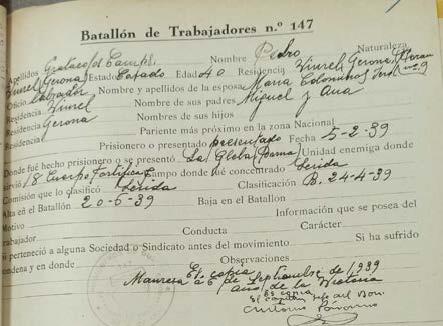 Batallón de Trabajadores n.º 147
Apellidos Nombre Pedro Naturaleza
(Gerona) Estado Casado Edad 40 Residencia Gerona
Oficio Labrador Nombre y apellidos de la esposa María
Residencia Nombre de sus padres Miguel y Ana
Residencia Gerona Nombre de sus hijos
Residencia Pariente más próximo en la zona Nacional
Prisionero o presentado presentado Fecha 5-2-39
Donde fué hecho prisionero o se presentó La Unidad enemiga donde
sirvió 8 Cuerpo Campo donde fué concentrado Lérida
Comisión que lo clasificó Lérida Clasificación B. 24-4-39
Alta en el Batallón 20-6-39 Baja en el Batallón
Motivo Información que se posea del
trabajador Conducta Carácter
Si perteneció a alguna Sociedad o Sindicato antes del movimiento Si ha sufrido
condena y en donde Observaciones
Es copia
Manresa a 6 de Septiembre de 1939
Año de la Victoria
Es copia
El Capitán del Bon.
Antonio